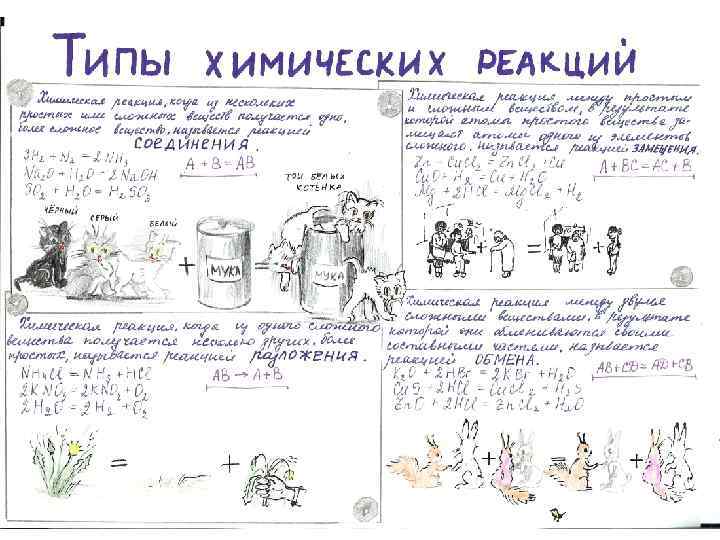 ТИПЫ ХИМИЧЕСКИХ РЕАКЦИЙ
Химическая реакция, когда из нескольких
простых или сложных веществ получается одно,
более сложное вещество, называется реакцией
СОЕДИНЕНИЯ.
3H₂ + N₂ = 2NH₃
Na₂O + H₂O = 2NaOH
SO₂ + H₂O = H₂SO₃
A + B = AB
ЧЁРНЫЙ
СЕРЫЙ
БЕЛЫЙ
+
МУКА
=
ТРИ БЕЛЫХ
КОТЕНКА
МУКА
Химическая реакция между простым
и сложным веществом, в результате
которой атомы простого вещества за-
мещают атомы одного из элементов
сложного. Называется реакцией ЗАМЕЩЕНИЯ.
Zn + CuCl₂ = ZnCl₂ + Cu
CuO + H₂ = Cu + H₂O
Mg + 2HCl = MgCl₂ + H₂
A + BC = AC + B
+ = +
Химическая реакция, когда из одного сложного
вещества получается несколько других, более
простых, называется реакцией РАЗЛОЖЕНИЯ.
NH₄Cl = NH₃ + HCl
2KNO₃ = 2KNO₂ + O₂
2H₂O = 2H₂ + O₂
AB → A + B
= +
Химическая реакция между двумя
сложными веществами, в результате
которой они обмениваются своими
составными частями, называется
реакцией ОБМЕНА.
K₂O + 2HBr = 2KBr + H₂O
CuS + 2HCl = CuCl₂ + H₂S
ZnO + 2HCl = ZnCl₂ + H₂O
AB + CD = AD + CB
+ = +